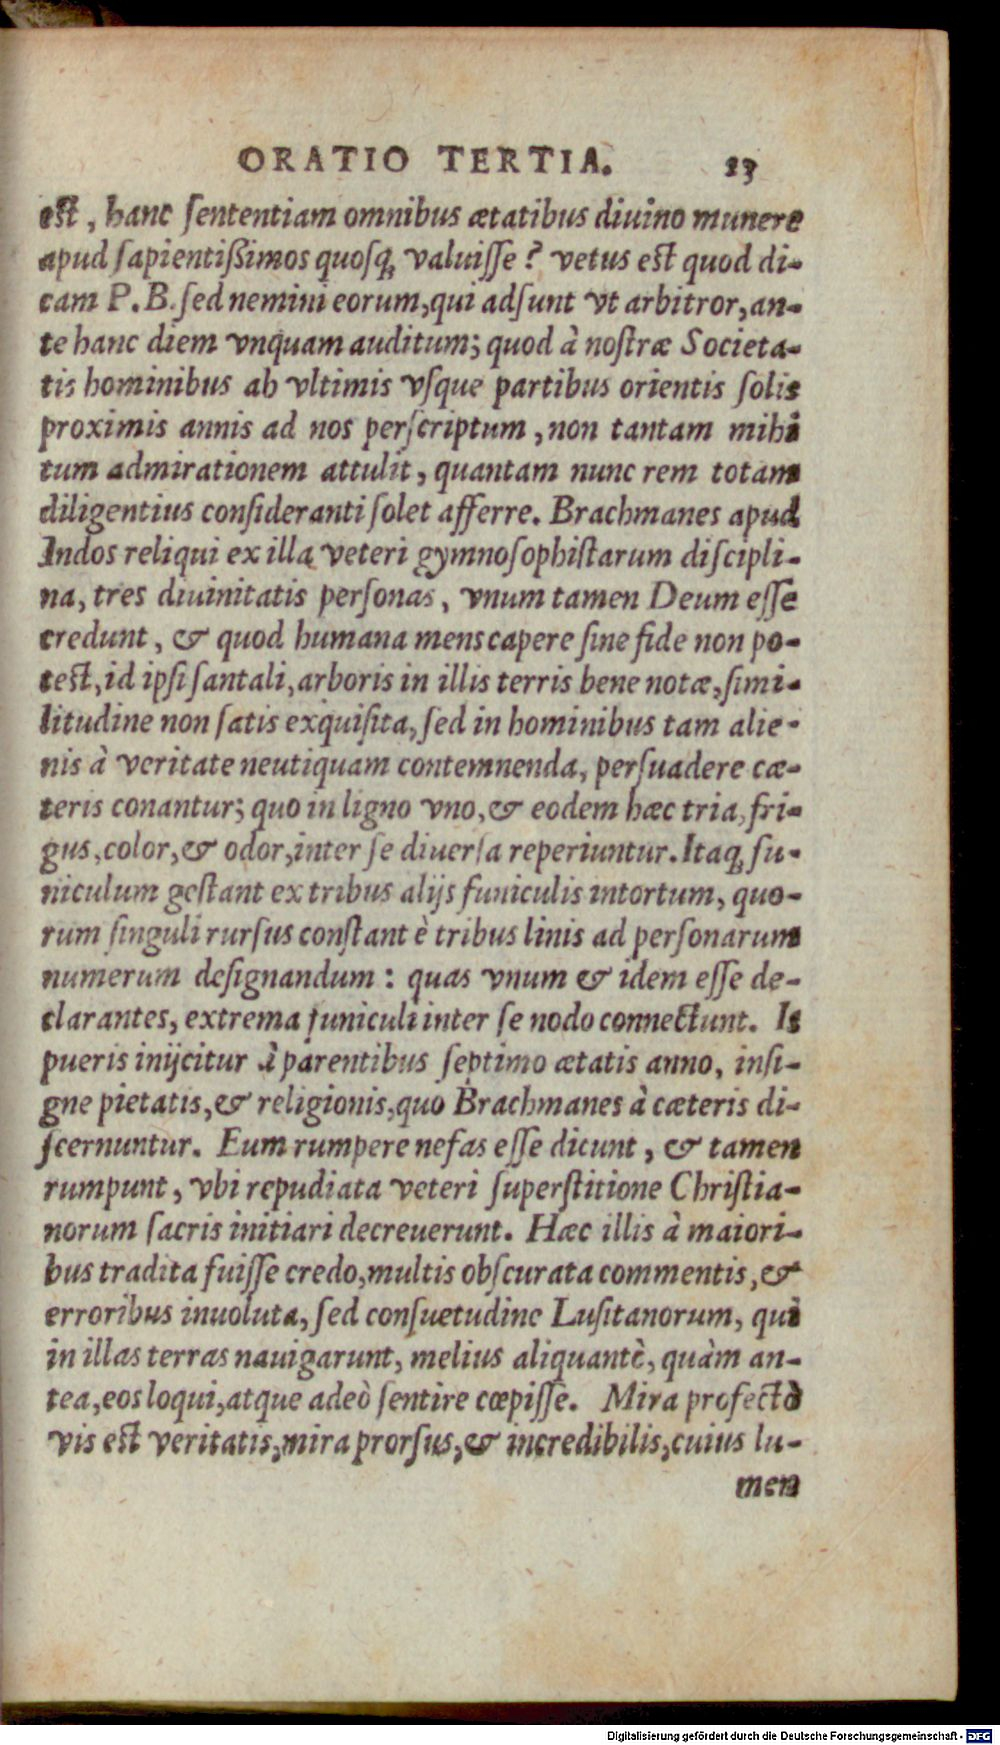 ORATIO TERTIA. 23
est, hanc ſententiam omnibus ætatibus diuino munere
apud ſapientißimos quoſq; valuiſſe? vetus est quod di-
cam P. B. ſed nemini eorum, qui adſunt vt arbitror, an-
te hanc diem vnquam auditum; quod à noſtræ Societa-
tis hominibus ab vltimis vſque partibus orientis ſolis
proximis annis ad nos perſcriptum, non tantam mihi
tum admirationem attulit, quantam nunc rem totam
diligentius conſideranti ſolet afferre. Brachmanes apud
Indos reliqui ex illa veteri gymnoſophiſtarum diſcipli-
na, tres diuinitatis perſonas, vnum tamen Deum eſſe
credunt, & quod humana mens capere ſine fide non po-
test, id ipſi ſantali, arboris in illis terris bene notæ, ſimi-
litudine non ſatis exquiſita, ſed in hominibus tam alie-
nis à veritate neutiquam contemnenda, perſuadere cæ-
teris conantur; quo in ligno vno, & eodem hæc tria, fri-
gus, color, & odor, inter ſe diuerſa reperiuntur. Itaq; fu-
niculum geſtant ex tribus alijs funiculis intortum, quo-
rum ſinguli rurſus conſtant è tribus linis ad perſonarum
numerum deſignandum: quas vnum & idem eſſe de-
clarantes, extrema funiculi inter ſe nodo connectunt. Is
pueris inijcitur à parentibus ſeptimo ætatis anno, inſi-
gne pietatis, & religionis, quo Brachmanes à cæteris di-
ſcernuntur. Eum rumpere nefas eſſe dicunt, & tamen
rumpunt, vbi repudiata veteri ſuperſtitione Chriſtia-
norum ſacris initiari decreuerunt. Hæc illis à maiori-
bus tradita fuiſſe credo, multis obſcurata commentis, &
erroribus inuoluta, ſed conſuetudine Luſitanorum, qui
in illas terras nauigarunt, melius aliquantè, quàm an-
tea, eos loqui, atque adeò ſentire cœpiſſe. Mira profectò
vis est veritatis, mira prorſus, & incredibilis, cuius lu-
men
Digitalisierung gefördert durch die Deutsche Forschungsgemeinschaft - DFG